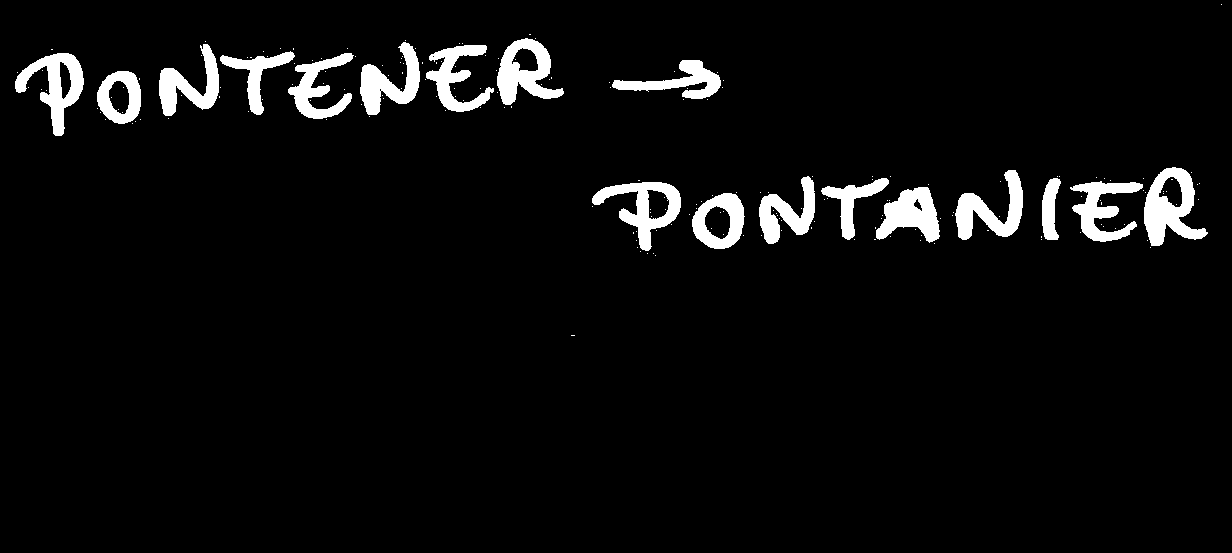 PONTENER →
PONTANIER